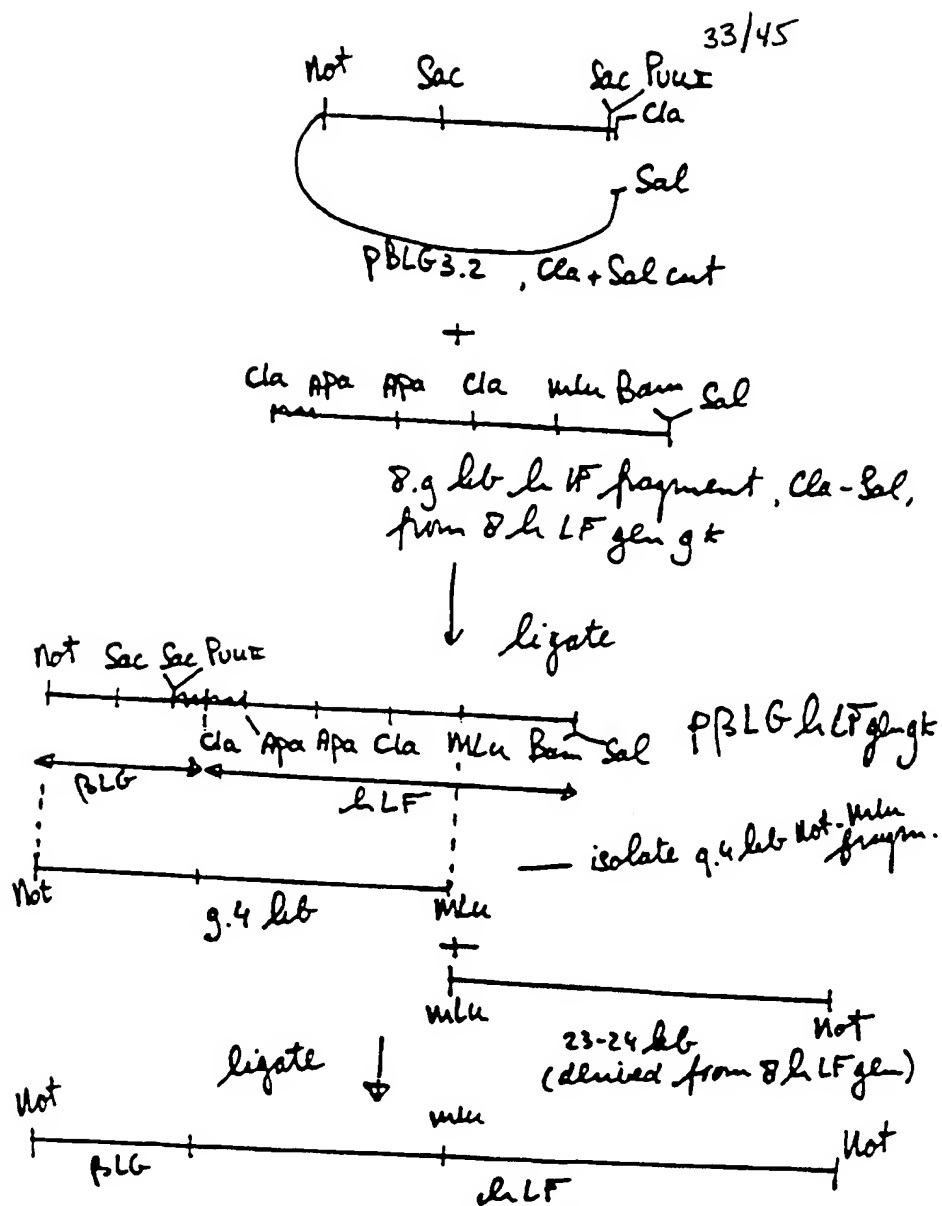 33/45
Not Sac Sac PvuII
Cla
Sal
pBLG3.2, Cla + Sal cut
+
Cla Apa Apa Cla Mlu Bam Sal
8.9 kb hLF fragment, Cla-Sal,
from 8hLFgen9k
ligate
Not Sac Sac PvuII
Cla Apa Apa Cla MLu Bam Sal pβLGhLFgen9k
βLG hLF
— isolate 9.4 kb Not-Mlu
fragm.
Not 9.4 kb MLu
+
MLu Not
23-24 kb
(derived from 8hLFgen)
ligate
Not Mlu Not
βLG hLF